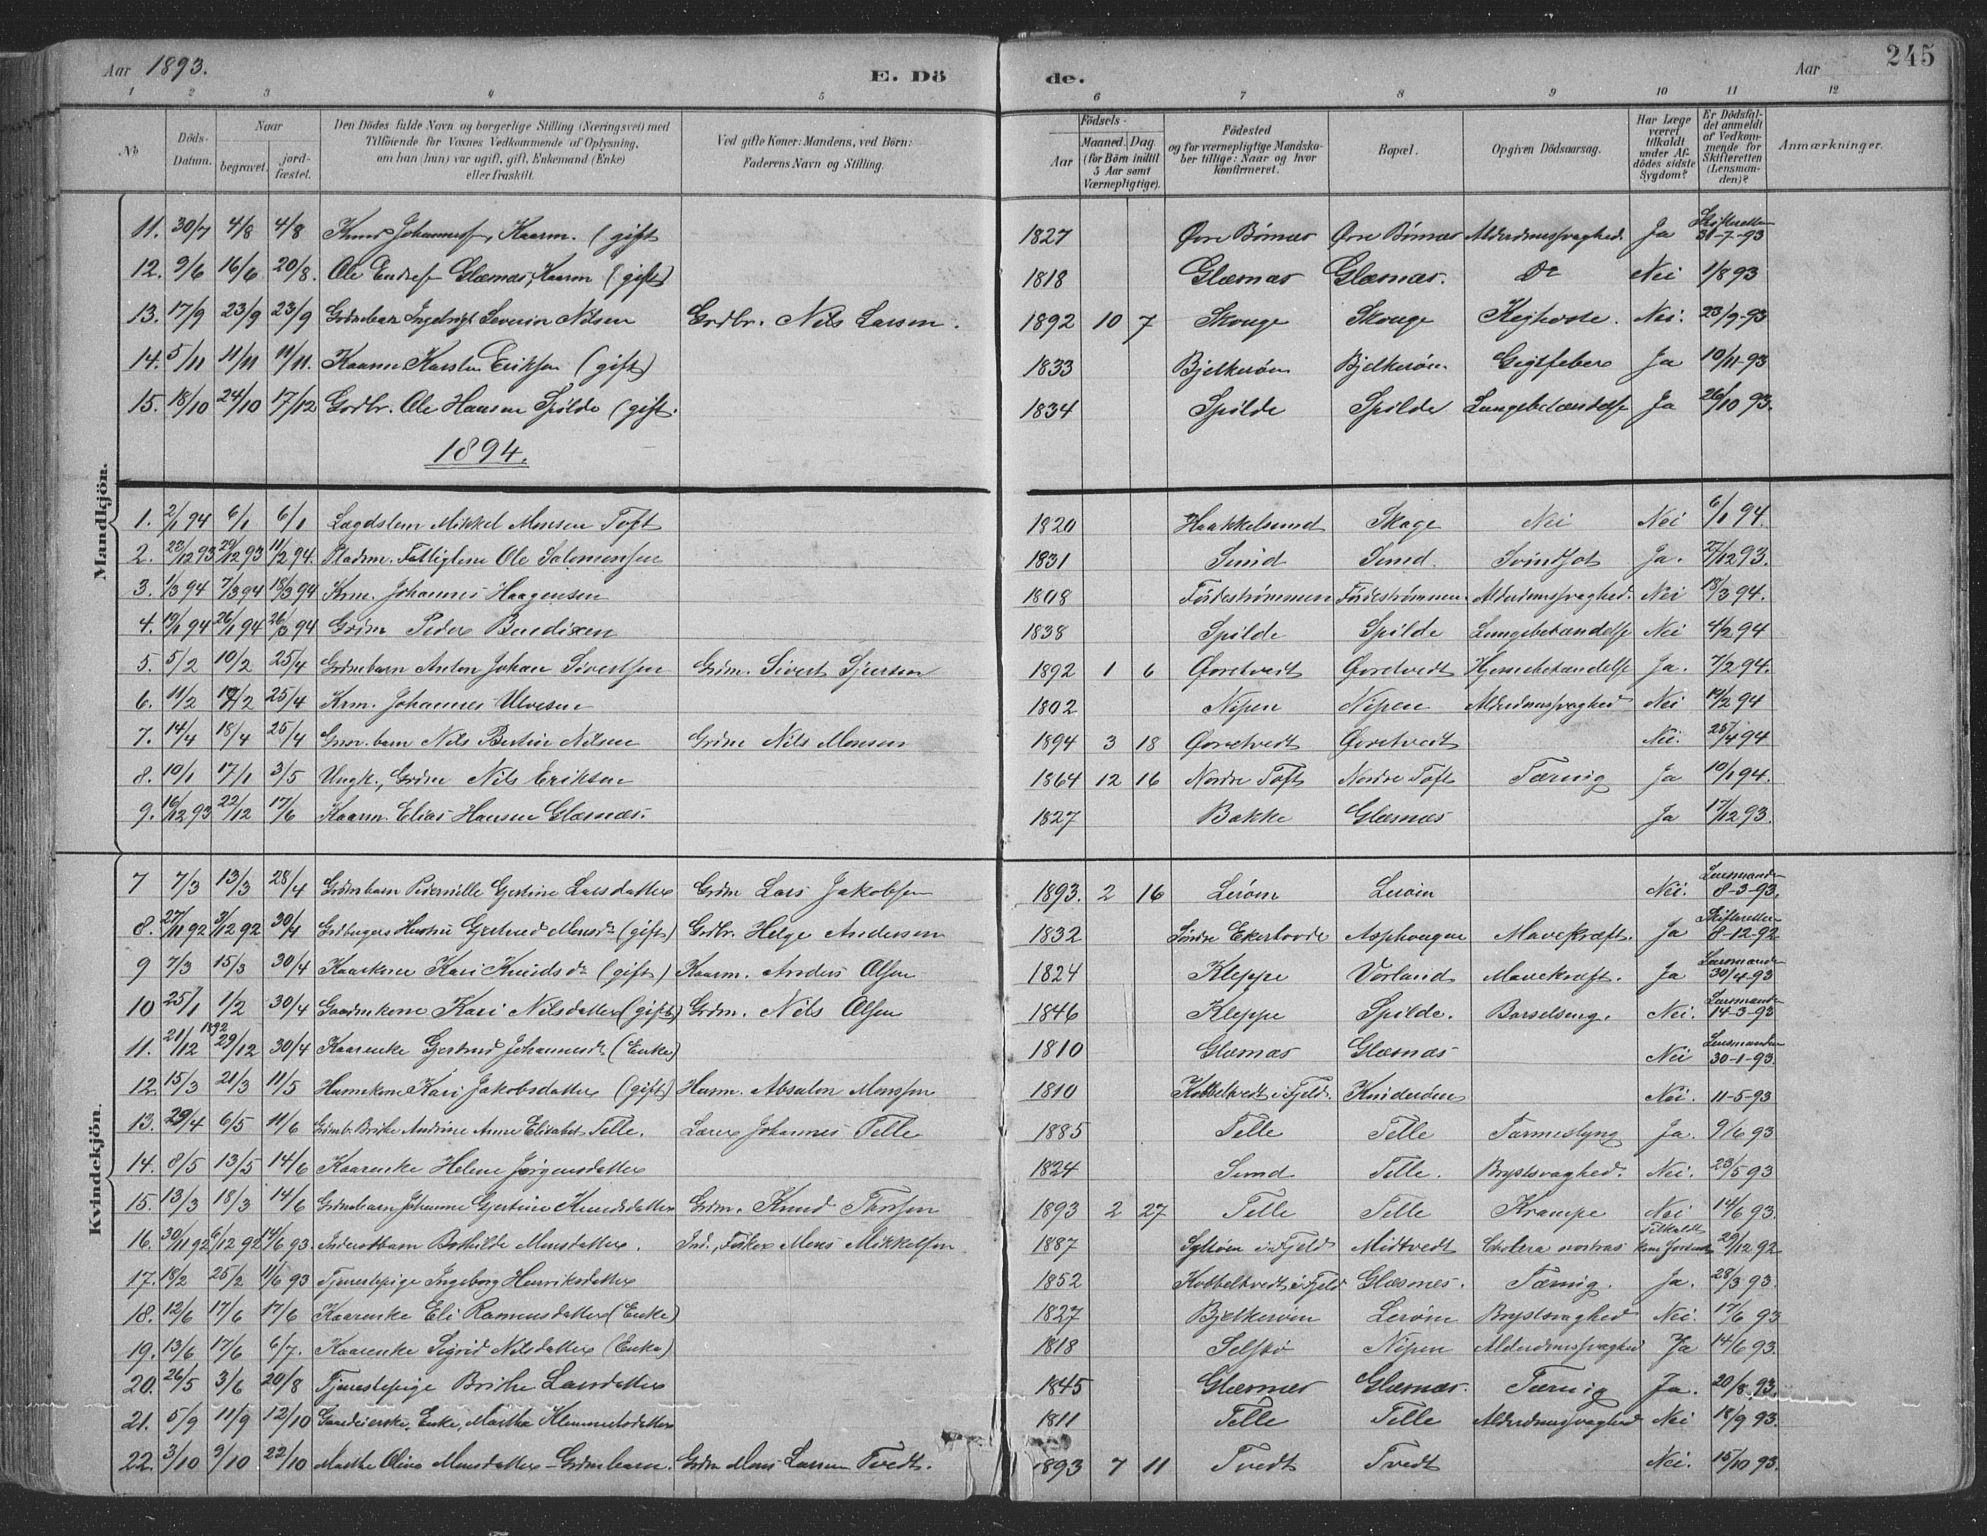 Aar 1893. E. Dö de. Aar 245
1 2 3 4 5 6 7 8 9 10 11 12
No
Döds-Datum.
Naar begravet. jordfæstet.
Den Dödes fulde Navn og borgerlige Stilling (Næringsvei) med Tilföiende for Voxnes Vedkommende af Oplysning, om han (hun) var ugift, gift, Enkemand (Enke) eller fraskilt.
Ved gifte Koner: Mandens, ved Börn: Faderens Navn og Stilling.
Födsels- Aar Maaned. Dag. (for Börn indtil 5 Aar samt Værnepligtige).
Födested og for værnepligtige Mandskaber tillige: Naar og hvor konfirmeret.
Bopæl.
Opgiven Dödsaarsag.
Har Læge været tilkaldt under Afdödes sidste Sygdom?
Er Dödsfaldet anmeldt af Vedkommende for Skifteretten (Lensmanden)?
Anmærkninger.
Mandkjön.
11. 30/7 4/8 4/8 Knud Johannesf, Kaarm. (gift 1827 Øvre Børnæs Øvre Børnæs Alderdomssvaghed Ja Skifteretten 31-7-93
12. 9/6 16/6 20/8. Ole Endresf Glæsnæs, Kaarm (gift) 1818 Glæsnæs Glæsnæs. Do Nei 1/8 93
13. 17/9 23/9 23/9 Grdmbarn Ingebrigt Severin Nilsen Grdbr. Nils Larsen. 1892 10 7 Skouge Skouge Kighoste. Nei. 23/9-93
14. 5/11 11/11 11/11. Kaarm Karsten Eriksen (gift) 1833 Bjelkerøen Bjelkerøen Gigtfeber Ja 10/11-93
15. 18/10 24/10 17/12 Grdbr. Ole Hansen Spilde (gift. 1834 Spilde Spilde Lungebetændelse Ja 26/10 93.
1894.
1. 2/1 94 6/1 6/1 Lægdslem Mikkel Monsen Toft 1820 Haakkelsund Skage Nei Nei 6/1 94.
2. 23/12 93 29/12 93 11/2 94. Pladsm. Fattiglem Ole Salomonsen 1831 Sund Sund. Svindsot Ja. 27/12 93.
3. 1/3 94 7/3 94 18/3 94 Krm. Johannes Haagensen 1808 Fördestrømmen Fördestrømmen Alderdomssvaghed. Nei 18/3 94.
4. 19/1 94 26/1 94 26/3 94 Grdm Peder Bendixen 1838 Spilde Spilde Lungebetændelse Nei 4/2 94
5. 5/2 10/2 25/4 Grdmbarn Anton Johan Sivertsen Grdm. Sivert Sjursen 1892 1 6 Øvretvedt Øvretvedt Hjernebetændelse Ja. 7/2 94.
6. 11/2 17/2 25/4 Krm. Johannes Ulvesen 1802 Nipen Nipen Alderdomssvaghed Nei 19/2 94
7. 14/4 18/4 25/4 Grdm. barn Nils Bertin Nilsen Grdm Nils Monsen 1894 3 18 Øvretvedt Øvretvedt Nei. 25/4 94
8. 10/1 17/1 3/5 Ungk., Grdm Nils Eriksen 1864 12 16 Nordre Toft Nordre Toft Tæring Ja 10/1 94.
9. 16/12 93 22/12 17/6 Kaarm. Elias Hansen Glæsnæs. 1827 Bakke Glæsnæs Ja 17/12 93.
Kvindekjön.
7 7/3 13/3 28/4 Grdmbarn Pernille Gjertine Larsdatter Grdm Lars Jakobsen 1893. 2 16 Lerøen Lerøen Nei. Lensmanden 8-3-93.
8. 27/11 92 3/12 92 30/4 Grdbrugers Hustru Gjertrud Monsdr (gift) Grdbr. Helge Andersen 1832 Søndre Ekerhovde Asphougen Mavekræft. Ja Skifteretten 8-12-92
9 7/3 15/3 30/4 Kaarkone Kari Knudsdr (gift) Kaarm. Anders Olsen 1824 Kleppe Vorland Mavekræft. Ja Lensmanden 30/4-93
10 25/1 1/2 30/4 Gaardmkone Kari Nilsdatter (gift) Grdm. Nils Olsen 1846 Kleppe Spilde. Barselseng. Nei. Lensmanden 14-3-93
11. 21/12 1892 29/12 30/4 Kaarenke Gjertrud Johannesdr (Enke) 1810 Glæsnæs Glæsnæs Nei Lensmanden 30-1-93.
12. 15/3 21/3 11/5 Husmkone Kari Jakobsdatter (gift) Husm. Absalon Monssen 1810 Kobbeltvedt i Fjeld. Nei. 11-5-93
13. 29/4 6/5 11/6 Grdmb. Brithe Andrine Anne Elisabet Telle. Lærer Johannes Telle 1885 Telle Telle Tarmeslyng Ja. 9/6 93
14. 8/5 13/5 14/6 Kaarenke Helene Jørgensdatter 1824 Sund Telle. Brystsvaghed. Nei. 23/5 93
15. 13/3 18/3 14/6 Grdmbarn Johanne Gjertine Knudsdatter Grdm. Knud 1893 2 27 Telle Telle Krampe Nei 14/6 93.
16. 30/11 92 6/12 92 14/6 93. Inderstbarn Bothilde Monsdatter. Ind., Fisker Mons Mikkelsen 1887 i Fjeld Midtvedt Cholera nostras Tilkaldt 29/12 92
17. 18/2 25/2 11/6 93 Tjenestepige Ingeborg Henriksdatter 1852 Kobbeltvedt i Fjeld Glæsnes. Tæring. Ja. 28/3 93.
18. 12/6 17/6 17/6 Kaarenke Eli Rasmusdatter (Enke) 1827 Bjelkerøen Lerøen Brystsvaghed Nei. 17/6 93
19. 13/6 17/6 6/7. Kaarenke Sigrid Nilsdatter (Enke) 1818 Selstø Nipen Alderdomssvaghed Ja 14/6 93.
20. 26/5 3/6 20/8 Tjenestepige Brithe Larsdatter 1845 Glæsnæs Glæsnæs. Tæring Ja. 20/8 93.
21. 5/9 11/9 12/10 Gaardeierske, Enke, Martha Klemmetsdatter 1811 Telle Telle Alderdomssvaghed Nei 18/9 93.
22. 3/10 9/10 22/10 Marthe Olina Monsdatter - Grdmbarn. Grdm Mons Larsen Tvedt. 1893 7 11 Tvedt Tvedt Nei. 15/10 93.